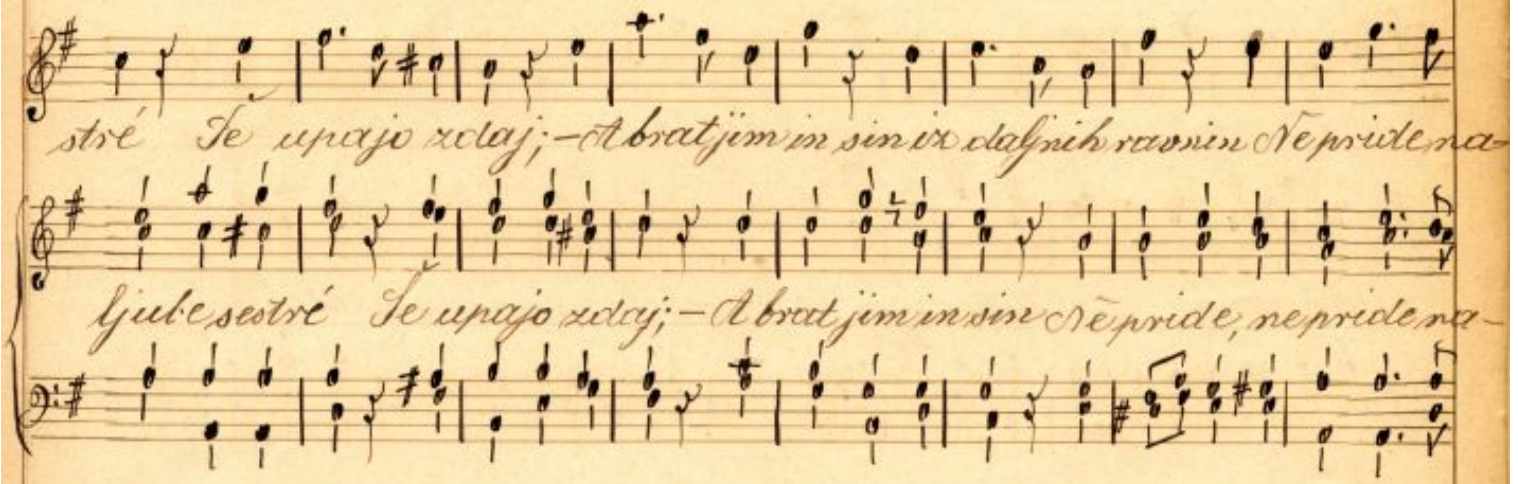 stré Še upajo zdaj; – A brat jim in sin iz daljnih ravnin Ne pride na-
ljube sestré Še upajo zdaj; – A brat jim in sin Ne pride, ne pride na-